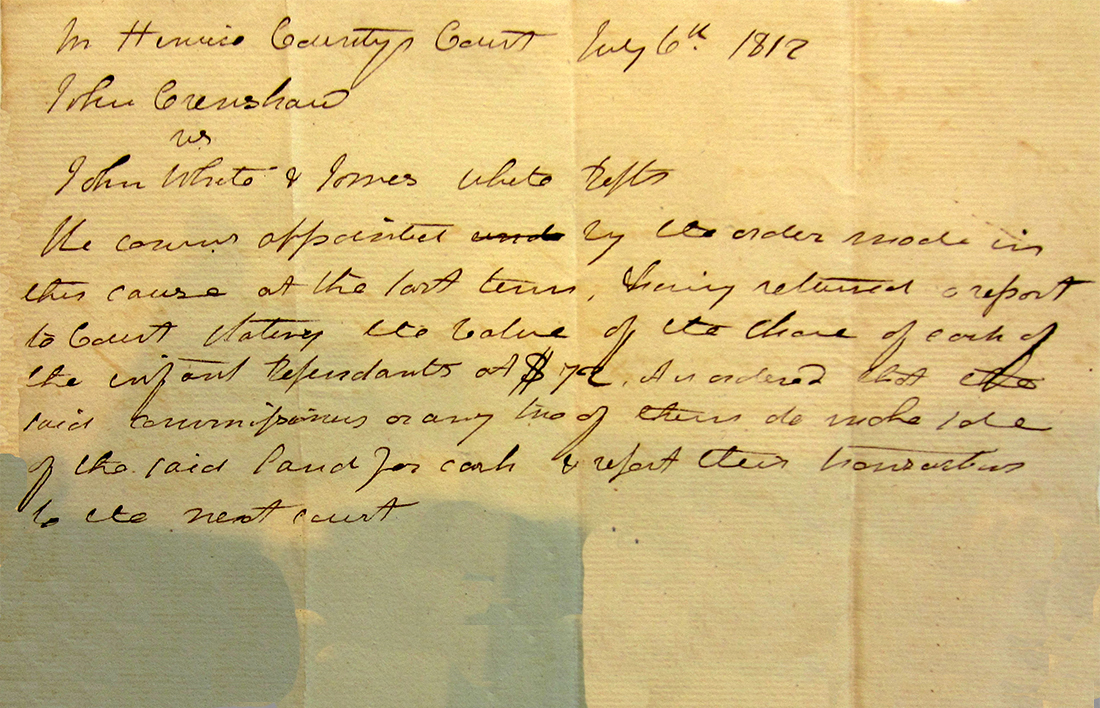 In Henrico County Court July 6th 1812
John Crenshaw
vs
John White & James White Defts
The comrs appointed by the order made in
this cause at the last term, having returned a report
to Court stating the value of the share of each of
the infant Defendants at $72. It is ordered that the
said commissioners or any two of them do make sale
of the said land for cash & report their transactions
to the next court